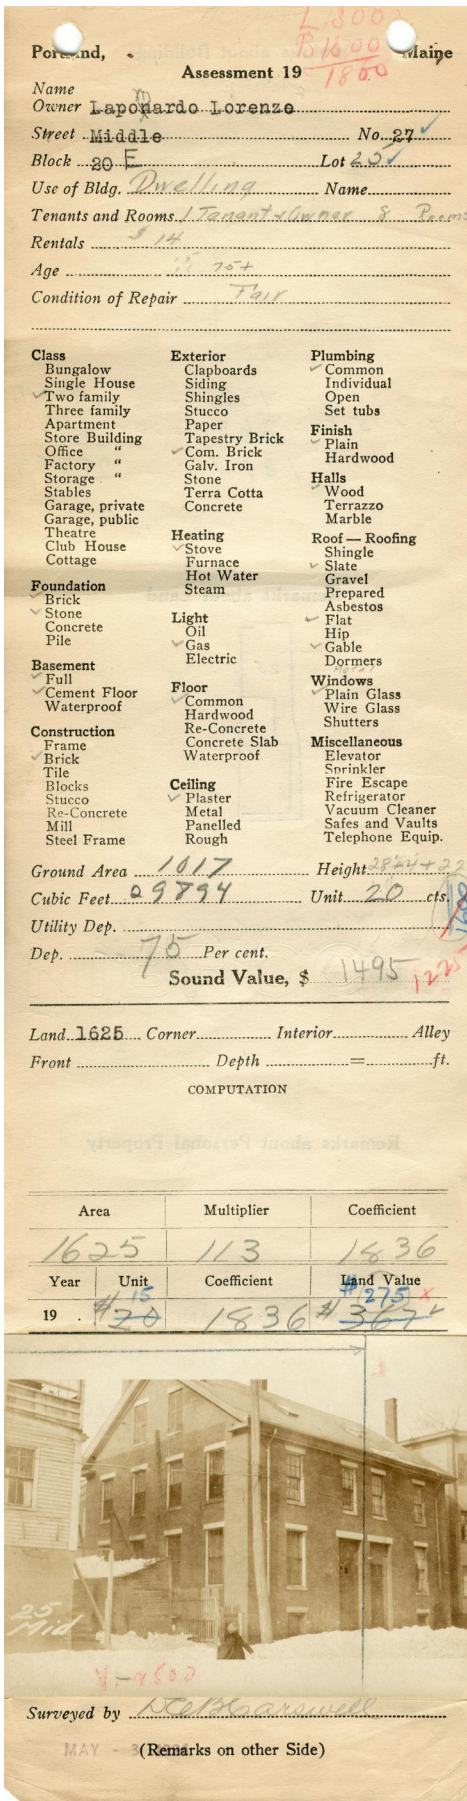 L 300
B 1500
1800
Portland, Maine
Assessment 19
Name
Owner Laponardo Lorenzo
Street Middle No. 27 ✓
Block 20 E Lot 25 ✓
Use of Bldg. Dwelling Name
Tenants and Rooms 1 Tenant & Owner 8 Rooms
Rentals $ 14
Age 75+
Condition of Repair Fair
Class
Bungalow
Single House
✓ Two family
Three family
Apartment
Store Building
Office "
Factory "
Storage "
Stables
Garage, private
Garage, public
Theatre
Club House
Cottage
Foundation
✓ Brick
✓ Stone
Concrete
Pile
Basement
✓ Full
✓ Cement Floor
Waterproof
Construction
Frame
✓ Brick
Tile
Blocks
Stucco
Re-Concrete
Mill
Steel Frame
Exterior
Clapboards
Siding
Shingles
Stucco
Paper
Tapestry Brick
✓ Com. Brick
Galv. Iron
Stone
Terra Cotta
Concrete
Heating
✓ Stove
Furnace
Hot Water
Steam
Light
Oil
✓ Gas
Electric
Floor
✓ Common
Hardwood
Re-Concrete
Concrete Slab
Waterproof
Ceiling
✓ Plaster
Metal
Panelled
Rough
Plumbing
✓ Common
Individual
Open
Set tubs
Finish
✓ Plain
Hardwood
Halls
✓ Wood
Terrazzo
Marble
Roof — Roofing
Shingle
✓ Slate
Gravel
Prepared
Asbestos
✓ Flat
Hip
✓ Gable
Dormers
Metal
Windows
✓ Plain Glass
Wire Glass
Shutters
Miscellaneous
Elevator
Sprinkler
Fire Escape
Refrigerator
Vacuum Cleaner
Safes and Vaults
Telephone Equip.
Ground Area 1017 Height
Cubic Feet 29794 Unit 20 cts.
Utility Dep.
Dep. 75 Per cent.
Sound Value, $ 1495 1225
Land 1625 Corner Interior Alley
Front Depth = ft.
COMPUTATION
Area Multiplier Coefficient
1625 113 1836
Year Unit Coefficient Land Value
15 $275 x
19 . $20 1836 $367 ✓
25
Mid
Surveyed by
MAY - 3
(Remarks on other Side)